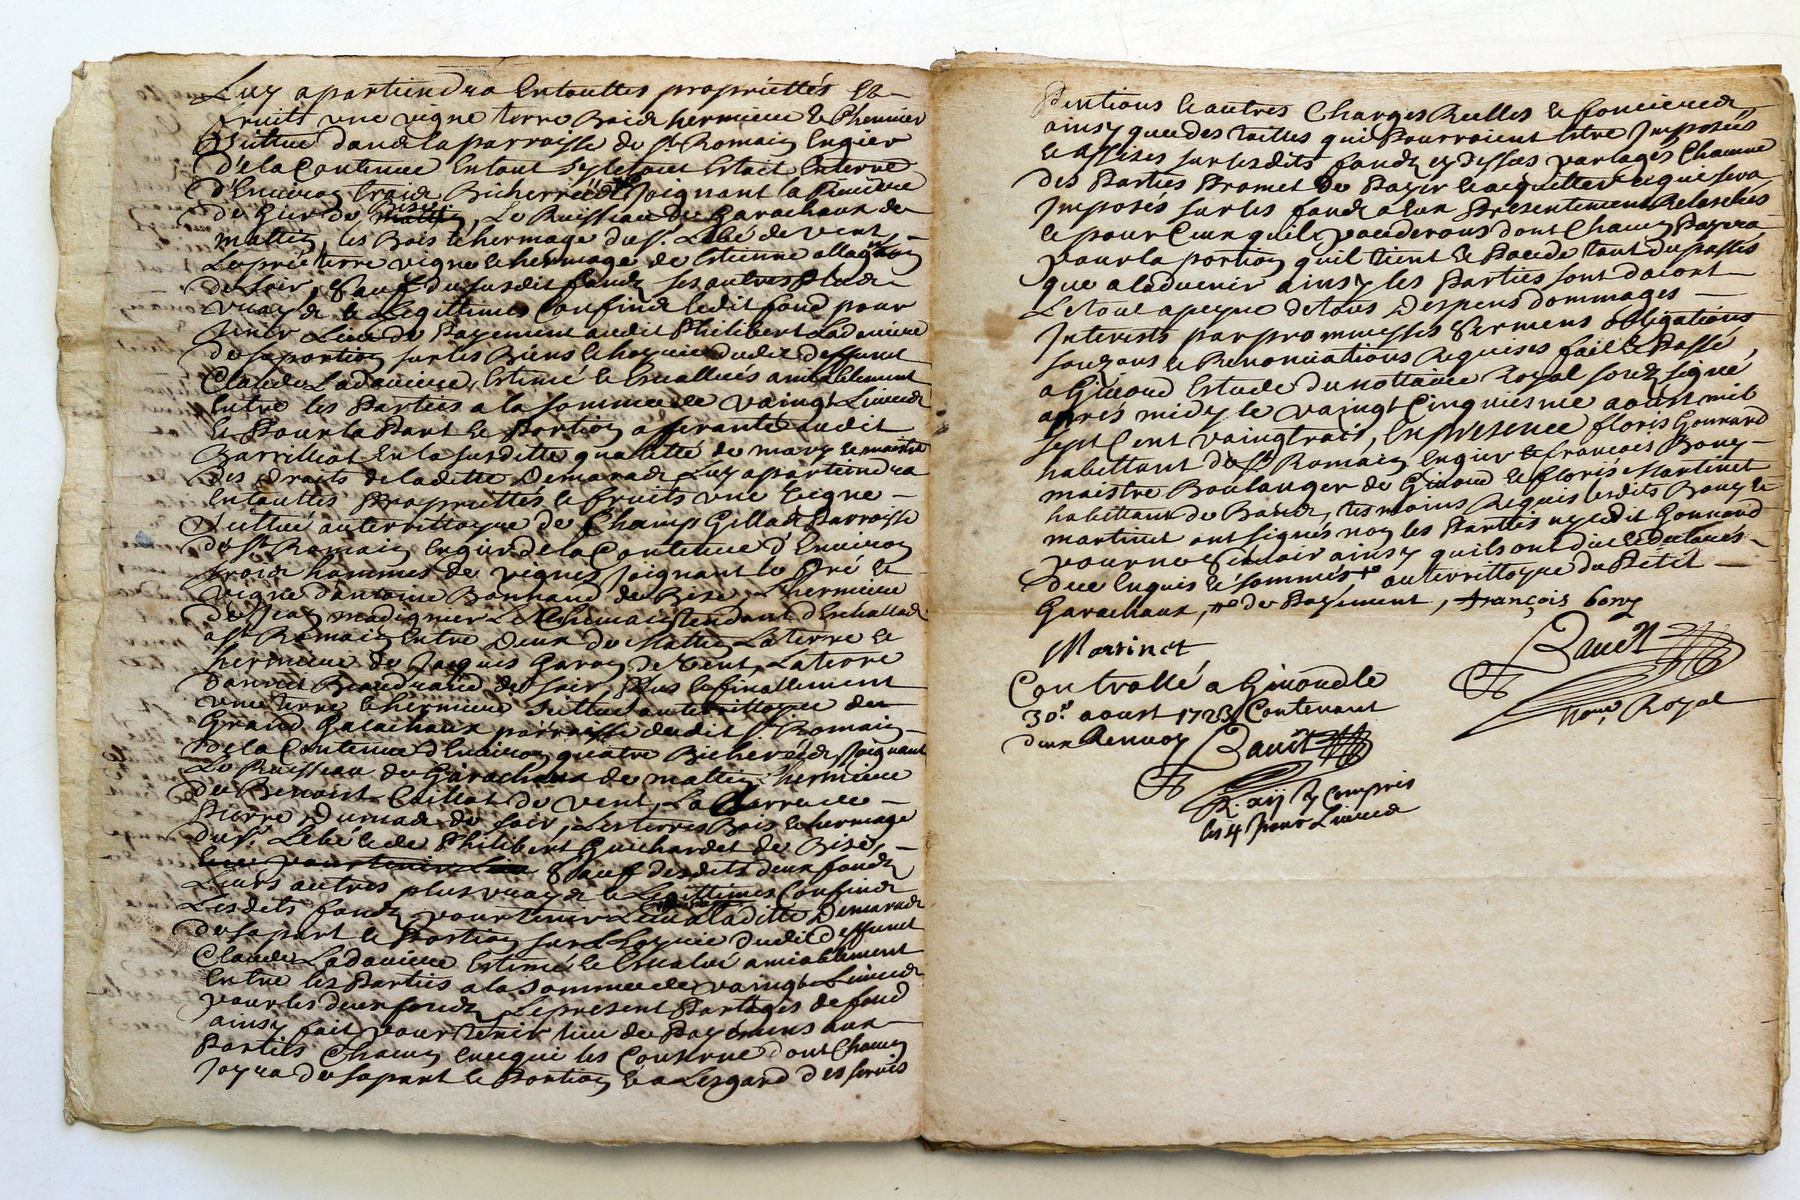 Luy apartiendra en touttes propriettés et
fruits une vigne terre Bois hermieue et Chemier
Scittué dans la parroisse de St Romain en gier
de la Contenue en tout
d'Environ trois Bicherrées joignant la Riviere
de Gier de Bise Le Ruisseau de Garachaux de
mattin, les Bois et hermage du Sr. Lebé de vent
Le pré terre vigne et hermage de Etienne
de soir, Sauf du susdit fondz ses autres plus
vrays et Legittimes Confins ledit fond pour
tenir Lieu de Payement audit Philibert Ladaviere
de sa portion sur les Biens et hoyrie dudit deffunt
Claude Ladaviere, estimé et Evallués amiablement
Entre les Parties a la somme de vaingt Livres
Et Pour la Part et Portion aferante audit
Barrilliot En la susditte qualitté de mary et maistre
des droits de laditte Demarade Luy apartiendra
En touttes Propriettes et fruits une vigne
Scittué au territtoyre de Champ Gillad Parroisse
de St Romain en gier de la Contenue d'Environ
trois hommes de vignes joignant le pré et
vigne d'antoine Bonnand de Bise, L'hermieue
de Jean madignier Le Chemain tendant d'Echallad
a St Romain Entre Deux de Mattin La terre et
hermieue de Jacques Garon de vent, La terre
de soir, Plus et finallement
une terre et hermieue Scittué au territtoyre du
Grand Garachaux parroisse dudit St Romain
de la Contenue d'Environ quatre Bicherées joignant
Le Ruisseau de Garachaux de mattin L'hermieue
de Benoist Caillot de vent, La
Pierre Dumas de soir, Les terres Bois et hermage
du Sr. Lebé et de Philibert Guichardet de Bise,
Sauf desdits deux fondz
Leurs autres plus vrays et Legittimes Confins
Lesdits fondz pour tenir Lieu a laditte Demarade
de sa part et Portion sur L'hoyrie dudit deffunt
Claude Ladaviere Estimé et Evalué amiablement
Entre les Parties a la somme de vaingt Livres
pour les deux fondz, Le present Partages de fond
ainsy fait pour tenir lieu de Payemens aux
Parties Chacun En ce qui les Conserne dont Chacun
Joyra de sa part et Portion et a L'esgard des servis
Pentions et autres Charges Reelles et foncieres
ainsy que des tailles qui Pourraient Estre Imposées
et assises sur lesdits fondz cy dessus partagés Chacune
des Parties Promet de Payer et acquitter ce que sera
Imposés sur les fondz a eux Presentement Relaschés
et pour Ceux quil possederons dont Chacun Payera
pour la portion quil tient et Possede tant du passés
que a ladvenir ainsy les Parties sont dacort
Le tout a peyne de tous Despens dommages
Interests par promesses Sermens obligations
souzons et Renonciations Requises fait et Passé,
a Givord Estude du nottaire Royal souz signé
apres midy le vaingt Cinquiesme aoust mil
sept Cent vaingtrois, En presence floris Gonnard
habittant de St Romain en gier et francois Bony
maistre Boulanger de Givord et floris Martinet
habittant de tesmoins Requis lesdits Bony et
martinet ont signés non les Parttis ny ledit Gonnard
pour ne scavoir ainsy quils ont dit et declarés
de ce Enquis et sommés au territtoyre du Petit
Garachaux, de Payement, françois bony
Martinet
Bauet
Controllé a Givord le
30e. aoust 1723 Contenant
nore. Royal
deux Renvoy Bauet
R. xij s Compris
les 4 s pour Livres